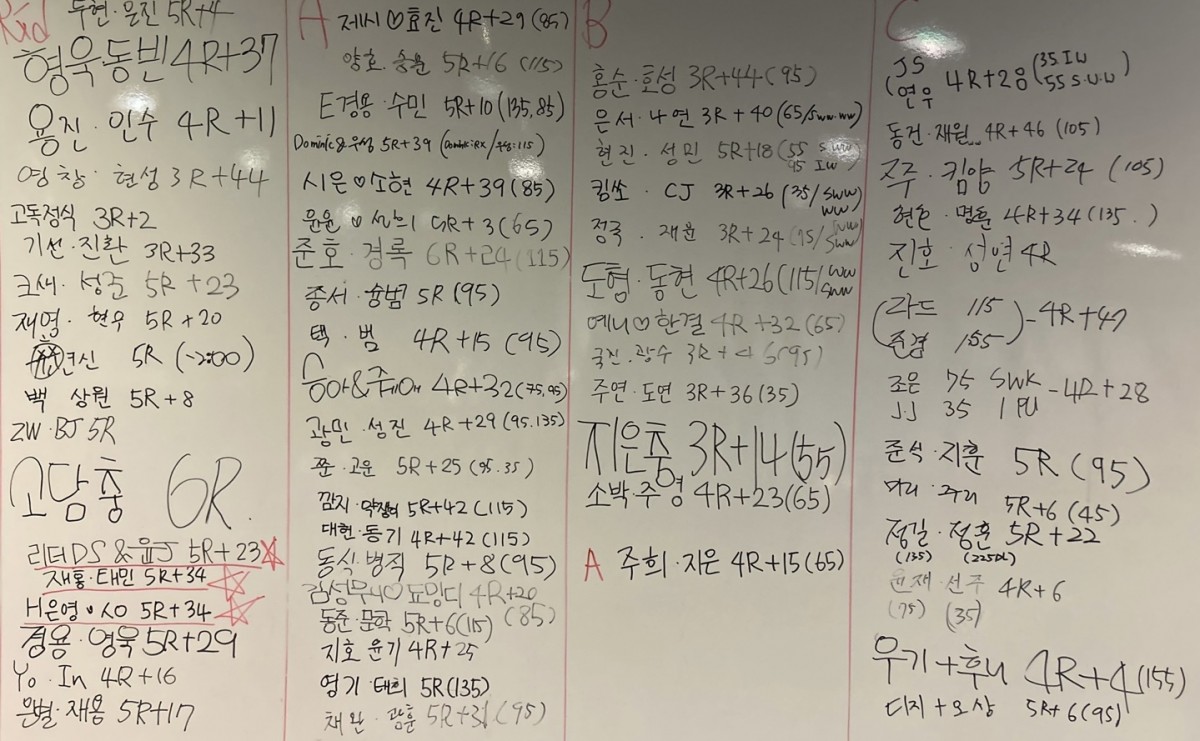 Rxd
두현·은진 5R+4
형욱동빈 4R+37
용진·인수 4R+11
영창·현성 3R+44
고독정식 3R+2
기선·진환 3R+33
크새·성준 5R+23
재영·현우 5R+20
연신 5R (-2:00)
백 상원 5R+8
ZW·BJ 5R
고담충 6R
리더DS & 윤J 5R+23
재홍·태민 5R+34
H은영 5R+34
경용·영욱 5R+29
Yo·In 4R+16
은별·재용 5R+17
A
제시♡효진 4R+29 (85)
양호·승윤 5R+16 (115)
E경용·수민 5R+10 (135,85)
Dominic&우성 5R+39 (Dominic:RX/우성:115)
시은♡소현 4R+39 (85)
5R+3 (65)
준호·경록 6R+24 (115)
종서·승범 5R (95)
택·범 4R+15 (95)
4R+32 (75,95)
광민·성진 4R+29 (95.135)
쭌·고운 5R+25 (95.35)
깜지· 5R+42 (115)
대현·동기 4R+42 (115)
동식 병직 5R+8 (95)
4R+20 (85)
동준·문학 5R+6 (115)
지호 윤기 4R+25
영기·태희 5R (135)
채완·광훈 5R+31 (95)
B
홍순·효성 3R+44 (95)
은서·나연 3R+40 (65/sww·ww)
현진·성민 5R+18 (55 sww
95 IW)
킴쏘·CJ 3R+26 (35/sww
ww)
정국·재훈 3R+24 (75/sww
sww)
도형·동현 4R+26 (115/ww
sww)
예니♡한결 4R+32 (65)
국진·광수 3R+4 (95)
주연·도연 3R+36 (35)
지은충 3R+14 (55)
소박·주영 4R+23 (65)
A 주희·지은 4R+15 (65)
C
JS
연우 4R+28 (35 IW
55 S.W.W)
동건·재원 4R+46 (105)
주·킴양 5R+24 (105)
4R+34 (135.)
진호·성연 4R
라드 115
준경 155 -4R+47
조은 75 SWK
J.J 35 1 PU -4R+28
준석·지훈 5R (95)
5R+6 (45)
정길·정훈 5R+22
(135) (225DL)
윤재·선주 4R+6
(75) (35)
우기+후니 4R+4 (155)
디지+오상 5R+6 (95)